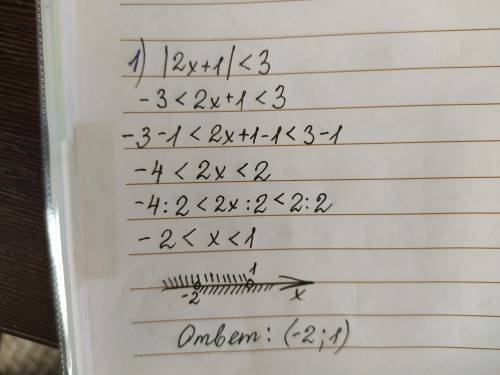 1) |2x+1|<3
-3<2x+1<3
-3-1<2x+1-1<3-1
-4<2x<2
-4:2<2x:2<2:2
-2<x<1
-2 1 x
Ответ: (-2;1)